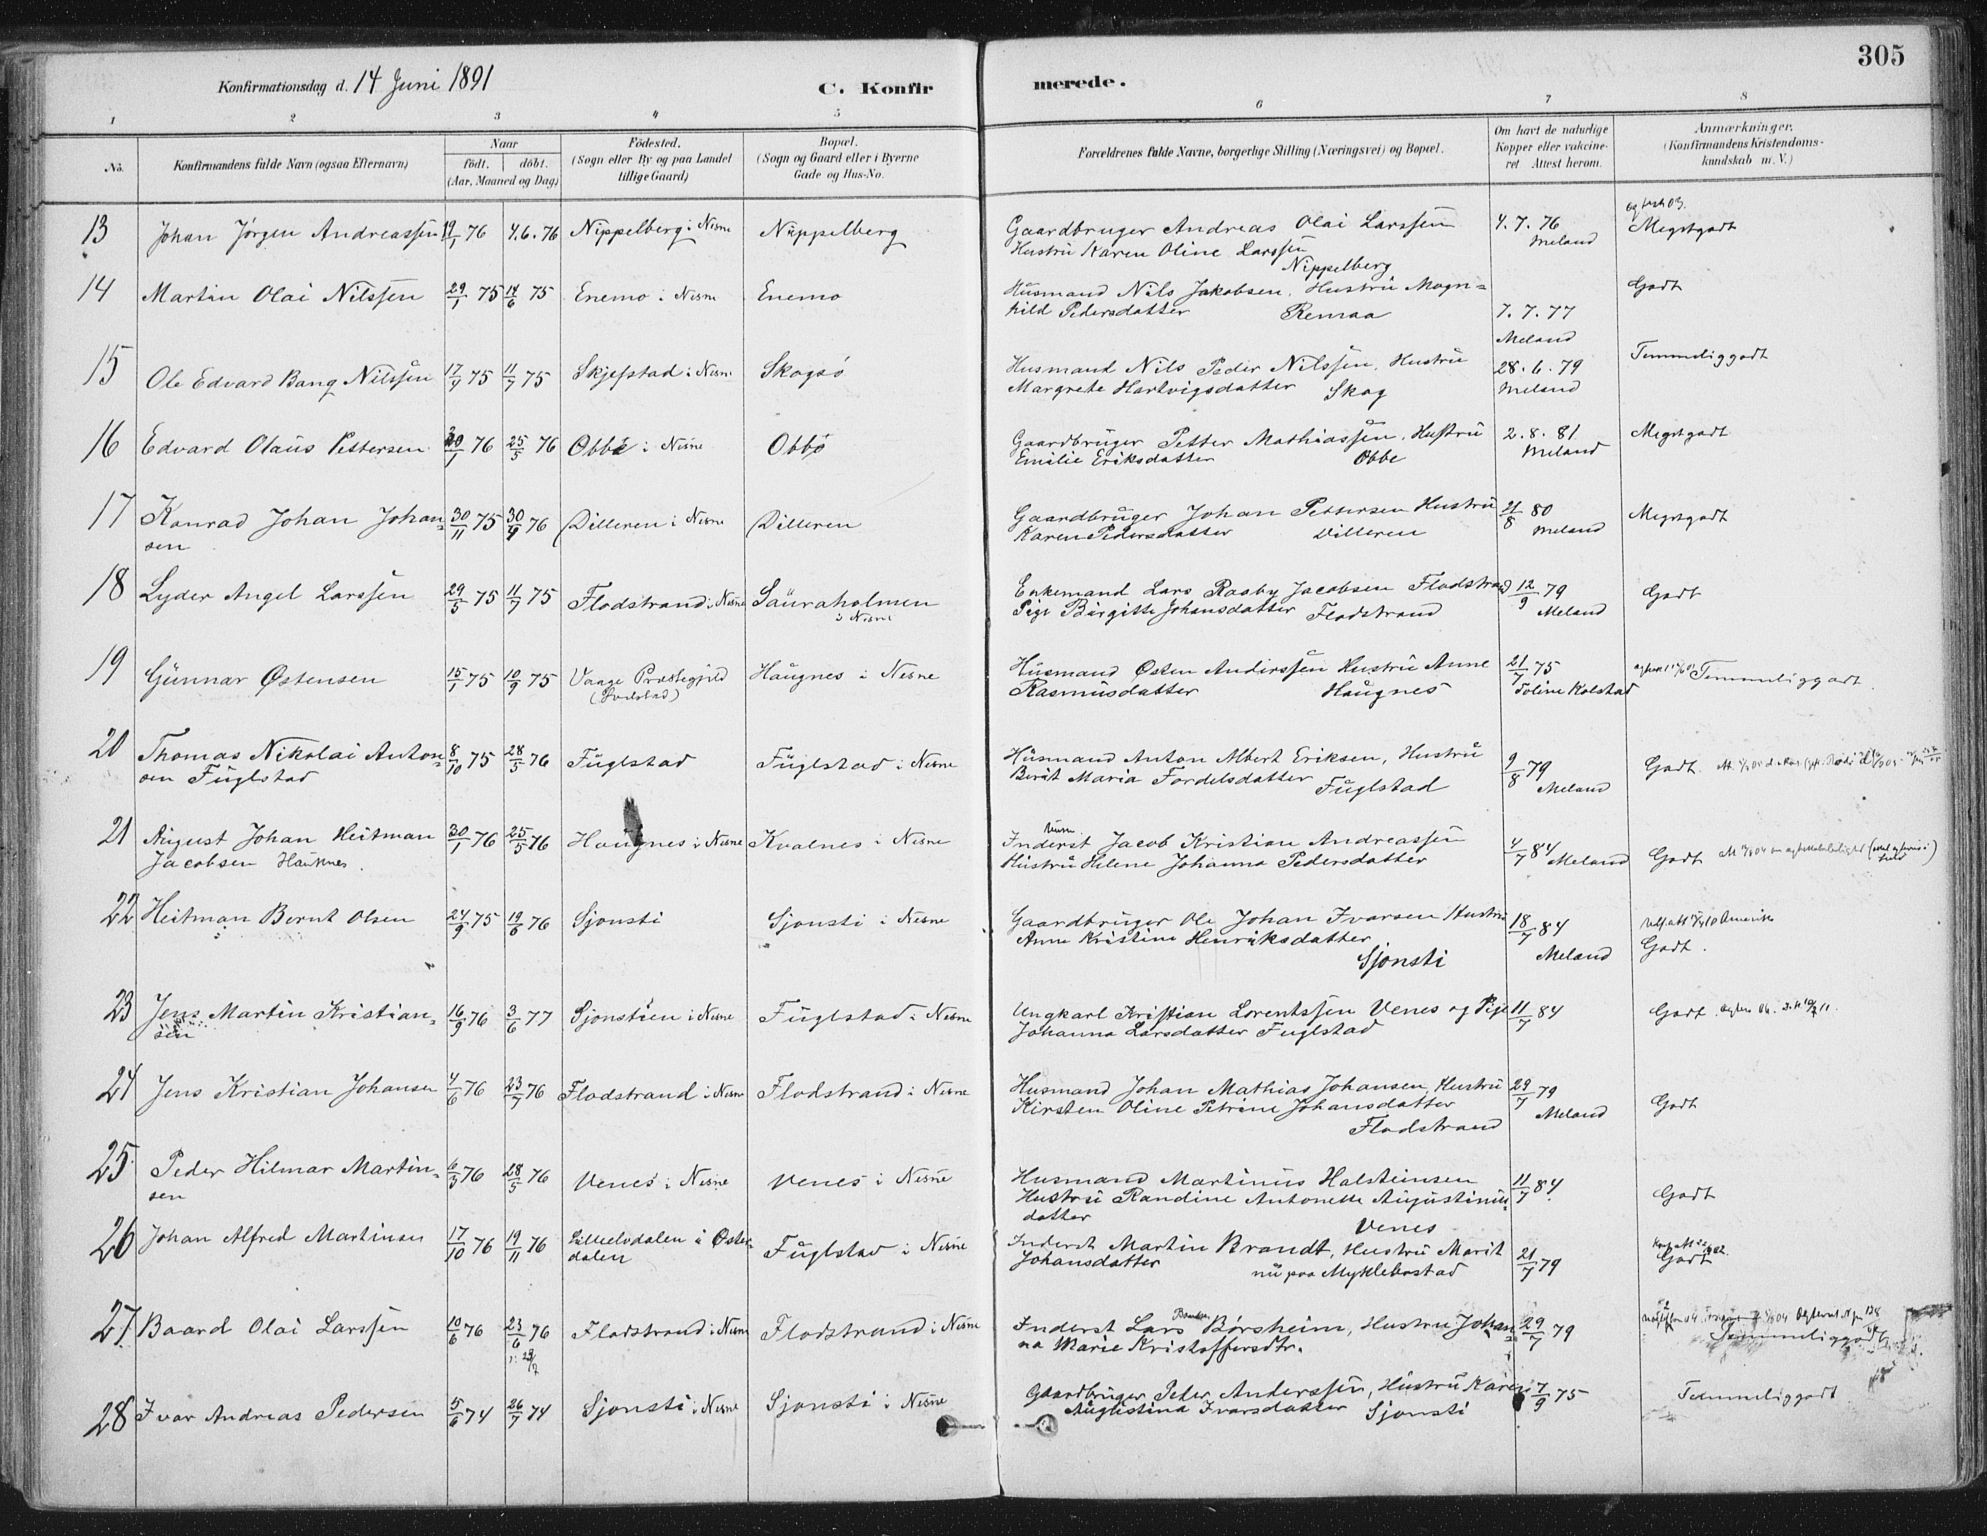 305
Konfirmationsdag d. 14 Juni 1891
C. Konfirmerede.
1 2 3 4 5 6 7 8
No. Konfirmandens fulde Navn (ogsaa Efternavn) Naar födt. döbt. (Aar, Maaned og Dag) Födested. (Sogn eller By og paa Landet tillige Gaard) Bopæl. (Sogn og Gaard eller i Byerne Gade og Hus-No. Forældrenes fulde Navne, borgerlige Stilling (Næringsvei) og Bopæl. Om havt de naturlige Kopper eller vakcineret Attest herom. Anmærkninger. (Konfirmandens Kristendomskundskab m. V.)
13 Johan Jørgen Andreassen 19/1 76 4.6.76 Nippelberg i Nesne Nippelberg Gaardbruger Andreas Olai Larssen 4.7.76 Megetgodt
Hustru Karen Oline Larssen Meland
Nippelberg
14 Martin Olai Nilssen 29/1 75 14/6 75 Enemo i Nesne Enemo Husmand Nils Jakobsen, Hustru Magn= Godt
hild Pedersdatter Remaa 7.7.77
Meland
15 Ole Edvard Bang Nilssen 17/9 75 11/7 75 Skjefstad i Nesne Skogsø Husmand Nils Peder Nilssen, Hustru 28.6.79 Temmeliggodt
Margrete Hartvigsdatter Skog Meland
16 Edvard Olaus Pettersen 30/1 76 25/5 76 Obbe i Nesne Obbø Gaardbruger Petter Mathiassen, Hustru 2.8.81 Megetgodt
Emilie Eriksdatter Obbe Meland
17 Konrad Johan Johan= 30/11 75 30/9 76 Dilleren i Nesne Dilleren Gaardbruger Johan Pettersen Hustru 21/8 80 Megetgodt
sen Karen Pedersdatter Dilleren Meland
18 Lyder Angel Larssen 29/5 75 11/7 75 Flodstrand i Nesne Sauraholmen Enkemand Lars Rasby Jacobsen Flodstrand 12/9 79 Godt
i Nesne Pige Birgitte Johansdatter Flodstrand Meland
19 Gunnar Østensen 15/1 75 10/9 75 Vaage Præstegjeld Haugnes i Nesne Husmand Østen Anderssen Hustru Anne 21/7 75 Temmeliggodt
Rasmusdatter Haugnes Toline Kolstad
20 Thomas Nikolai Anton= 8/10 75 28/5 76 Fuglstad Fuglstad i Nesne Husmand Anton Albert Eriksen, Hustru 9/8 79 Godt.
sen Fuglstad Berit Maria Fordelsdatter Fuglstad Meland
21 August Johan Heitman 30/1 76 25/5 76 Haugnes i Nesne Kvalnes i Nesne Inderst Jacob Kristian Andreassen 4/7 84 Godt
Jacobsen Hauknes. Hustru Helene Johanna Pedersdatter Meland
22 Heitman Bernt Olsen 24/9 75 19/6 76 Sjonsti Sjonsti i Nesne Gaardbruger Ole Johan Ivarsen Hustru 18/7 84 Godt.
Anne Kristine Henriksdatter Meland
Sjonsti
23 Jens Martin Kristian= 16/9 76 3/6 77 Sjonstien i Nesne Fuglstad i Nesne Ungkarl Kristian Lorentssen Venes og Pige 11/7 84 Godt
sen Johanna Larsdatter Fuglstad
24 Jens Kristian Johansen 4/6 76 23/7 76 Flodstrand i Nesne Flodstrand i Nesne Husmand Johan Mathias Johansen, Hustru 29/7 79 Godt
Kirsten Oline Petrine Johansdatter Meland
Flodstrand
25 Peder Hilmar Martin= 6/3 76 28/5 76 Venes i Nesne Venes i Nesne Husmand Martinus Halsteinsen 11/7 84 Godt
sen Hustru Randine Antonette Augustinus=
datter Venes
26 Johan Alfred Martinsen 17/10 76 19/11 76 Lillelvdalen i Øster= Fuglstad i Nesne Inderst Martin Brandt, Hustru Marit 21/7 79 Godt
dalen Johansdatter nu paa Myklebostad
27 Baard Olai Larssen 10/6 76 23/6 76 Flodstrand i Nesne Flodstrand i Nesne Inderst Lars Børsheim, Hustru Johan= 29/7 79 Temmeliggodt
na Marie Kristoffersdtr.
28 Ivar Andreas Pedersen 5/6 74 26/7 74 Sjonsti i Nesne Sjonsti i Nesne Gaardbruger Peter Anderssen, Hustru Karen 7/9 75 Temmeliggodt
Augustina Ivarsdatter Sjonsti